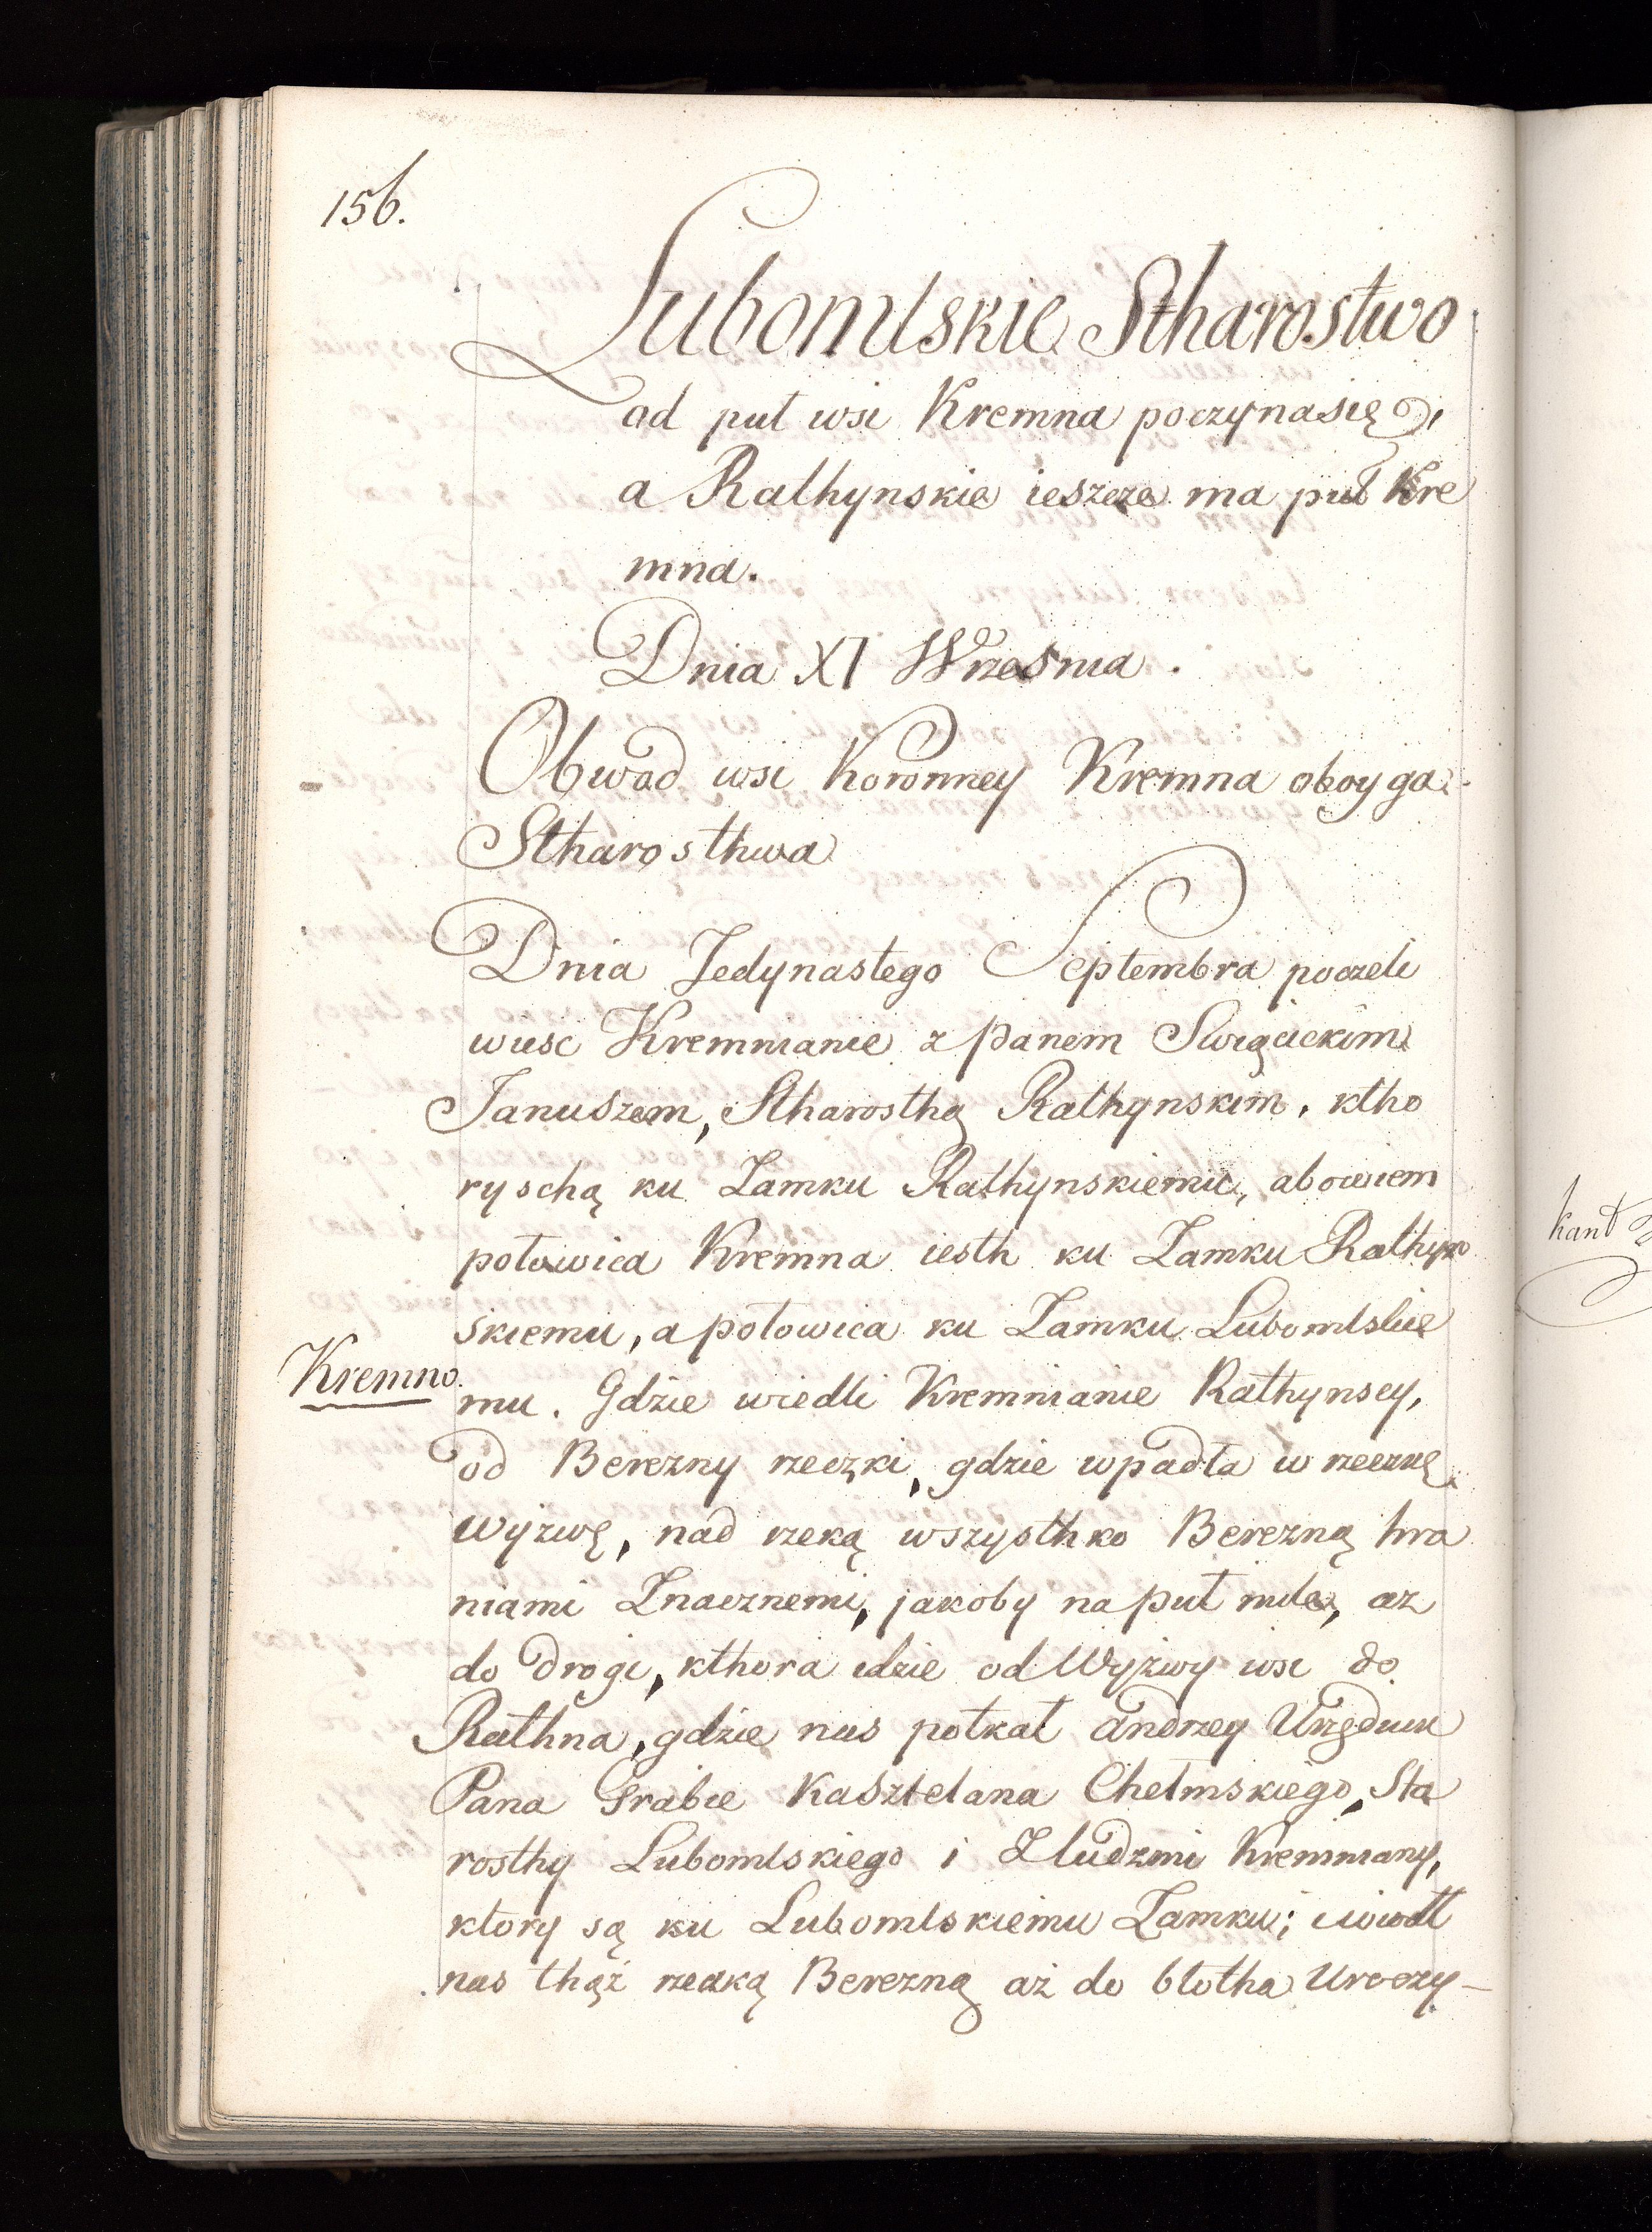 156.
Lubomlskie Stharostwo
od puł wsi Kremna poczynasię,
a Rathynskie ieszcze ma puł Kre
mna.
Dnia XI Wrzesnia.
Obwod wsi Koronney Kremna oboyga
Stharosthwa
Dnia Jedynastego Septembra poczeli
wiesc Kremnianie z Panem Swięcickim
Januszem, Stharosthą Rathynskim, ktho
ry schą ku Zamku Rathynskiemu, abowiem
połowica Kremna iesth ku Zamku Rathyn
skiemu, a połowica ku Zamku Lubomlskie
Kremno.
mu. Gdzie wiedli Kremnianie Rathynscy,
od Berezny rzeczki, gdzie wpadła w rzeczkę
Wyzwę, nad rzeką wszysthko Berezną hra
niami Znacznemi, jakoby na puł mile, az
do drogi, kthora idzie od Wyżwy wsi do
Rathna, gdzie nas potkał Andrzey Urzędnik
Pana Grabie Kasztelana Chełmskiego, Sta
rosthy Lubomlskiego i Z ludzmi Kremniany,
ktory są ku Lubomlskiemu Zamku; i wiodł
nas thąż rzeczką Berezną aż do błotha Uroczy-
kant